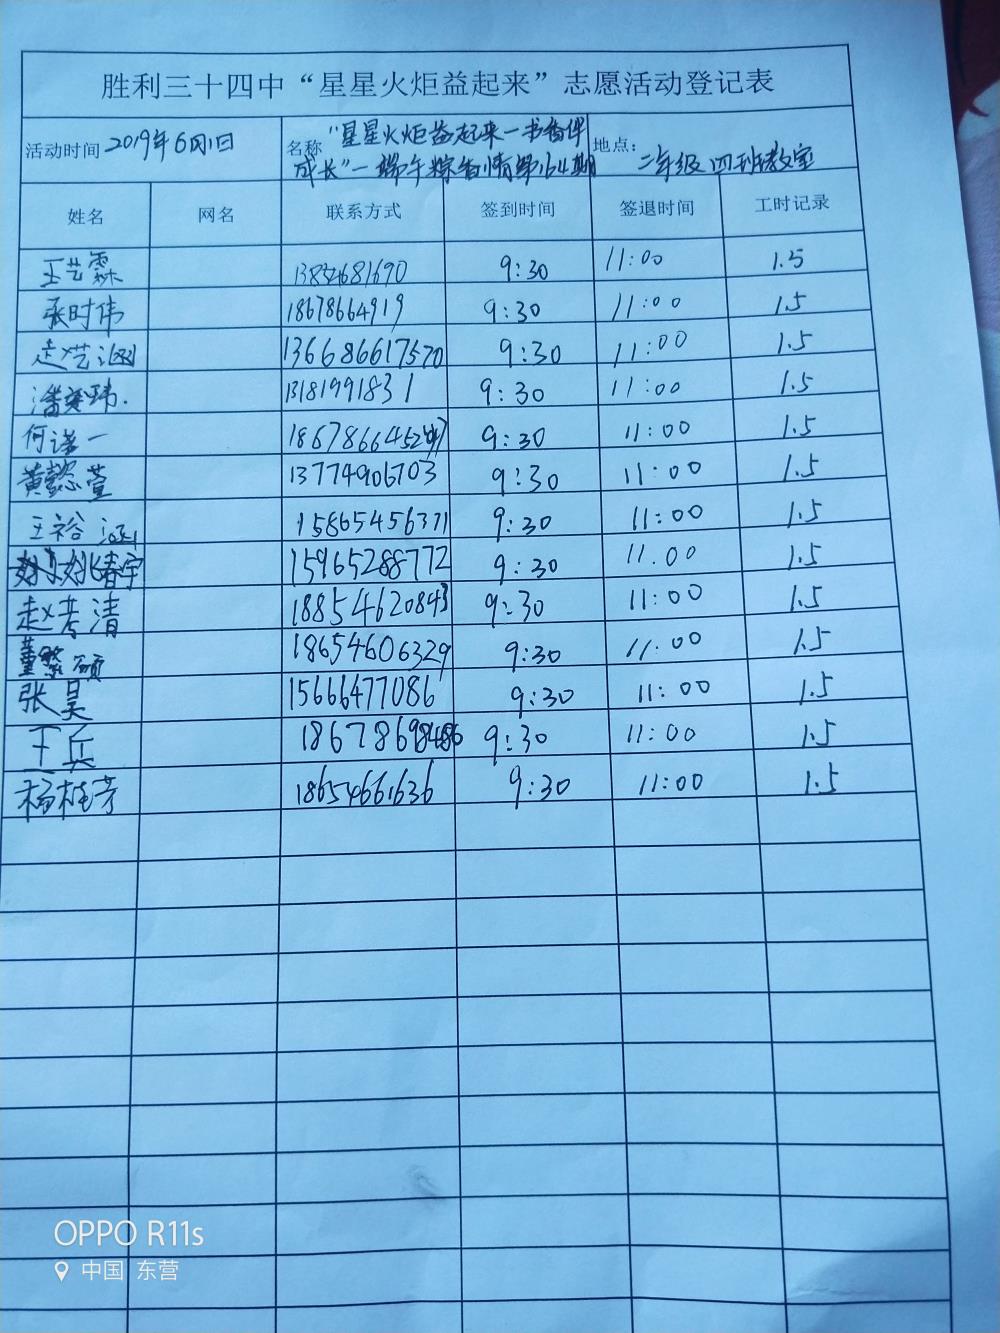 胜利三十四中“星星火炬益起来”志愿活动登记表
活动时间 2019年6月1日 名称 “星星火炬益起来—书香伴 地点：
成长”—端午粽香情第164期 二年级四班教室
姓名 网名 联系方式 签到时间 签退时间 工时记录
王艺霖 13854681690 9:30 11:00 1.5
张时伟 18678664919 9:30 11:00 1.5
赵艺涵 136686617570 9:30 11:00 1.5
潘奕玮. 13181991831 9:30 11:00 1.5
何谨一 9:30 11:00 1.5
黄懿萱 13774906703 9:30 11:00 1.5
王裕涵 15865456371 9:30 11:00 1.5
姚春宇 15965288772 9:30 11.00 1.5
赵考清 18854620843 9:30 11:00 1.5
董繁硕 18654606329 9:30 11:00 1.5
张昊 15666477086 9:30 11:00 1.5
王兵 9:30 11:00 1.5
杨桂芳 18654661636 9:30 11:00 1.5
OPPO R11s
中国 东营